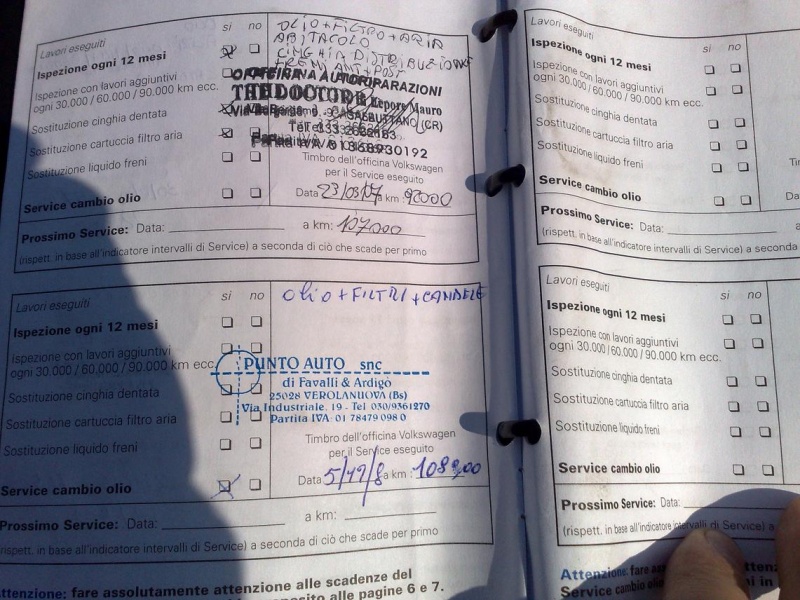 Lavori eseguiti si no
OLIO + FILTRO + ARIA
ABITACOLO
CINGHIA DISTRIBUZIONE
FRENI ANT + POST
Ispezione ogni 12 mesi
Ispezione con lavori aggiuntivi
ogni 30.000 / 60.000 / 90.000 km ecc.
Sostituzione cinghia dentata
Sostituzione cartuccia filtro aria
Sostituzione liquido freni
OFFICINA AUTORIPARAZIONI
THE DOCTOR Lepore Mauro
CASALBUTTANO (CR)
Timbro dell'officina Volkswagen
per il Service eseguito
Data 23/03/07 a km: 92000
Service cambio olio
Prossimo Service: Data: a km: 107000
(rispett. in base all'indicatore intervalli di Service) a seconda di ciò che scade per primo
Lavori eseguiti si no
OLIO + FILTRI + CANDELE
Ispezione ogni 12 mesi
Ispezione con lavori aggiuntivi
ogni 30.000 / 60.000 / 90.000 km ecc.
Sostituzione cinghia dentata
Sostituzione cartuccia filtro aria
Sostituzione liquido freni
PUNTO AUTO snc
di Favalli & Ardigò
25028 VEROLANUOVA (Bs)
Via Industriale, 19 - Tel 030/9361270
Partita IVA: 01 78479 098 0
Timbro dell'officina Volkswagen
per il Service eseguito
Data 5/12/8 a km: 108900
Service cambio olio
Prossimo Service: Data: a km:
(rispett. in base all'indicatore intervalli di Service) a seconda di ciò che scade per primo
Attenzione: fare assolutamente attenzione alle scadenze del
alle pagine 6 e 7.
Lavori eseguiti si no
Ispezione ogni 12 mesi
Ispezione con lavori aggiuntivi
ogni 30.000 / 60.000 / 90.000 km ecc.
Sostituzione cinghia dentata
Sostituzione cartuccia filtro aria
Sostituzione liquido freni
Service cambio olio
Prossimo Service: Data:
(rispett. in base all'indicatore intervalli di Service) a seconda
Lavori eseguiti si no
Ispezione ogni 12 mesi
Ispezione con lavori aggiuntivi
ogni 30.000 / 60.000 / 90.000 km ecc.
Sostituzione cinghia dentata
Sostituzione cartuccia filtro aria
Sostituzione liquido freni
Service cambio olio
Prossimo Service: Data:
(rispett. in base all'indicatore intervalli di Service) a
Attenzione: fare
Service cambio